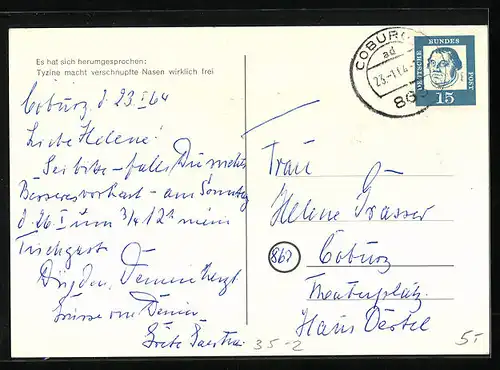 Es hat sich herumgesprochen:
Tyzine macht verschnupfte Nasen wirklich frei
Coburg d. 23. I 64
Liebe Helene!
Sei bitte - falls Du nichts
Besseres vorhast - am Sonntag
d. 26. I um 3/4 12h mein
Tischgast
Grüsse von Deiner
COBURG
ad
23.-1.64
863
DEUTSCHE BUNDES POST
15
Frau
Helene Grasser
(862) Coburg
Theaterplatz
Haus Oertel
35-2
5,-